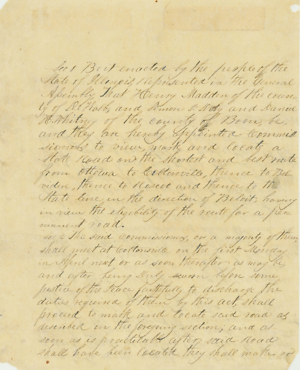 Sec 1 Be it enacted by the people of the
State of Illinois represented in the General
Assembly, That Henry Madden of the coun
ty of and and
Whitney of the county of Boon, be
and they are hereby appointed commis
sioners to view, mark and locate a
State Road on the Shortest and best route
from Ottawa to thence to
thence to and thence to the
State line in the direction of Beloit, having
in view the eligibility of the route for a per
manent road.
Sec 2 The said commissioners, or a majority of them
shall meet at on the first Monday
in April next or as soon thereafter as may be
and after being duly sworn before some
justice of the peace faithfully to discharge the
duties required of them by this act, shall
proceed to mark and locate said road as
described in the foregoing section, and as
soon as is practicable after said Road
shall have been located they shall make